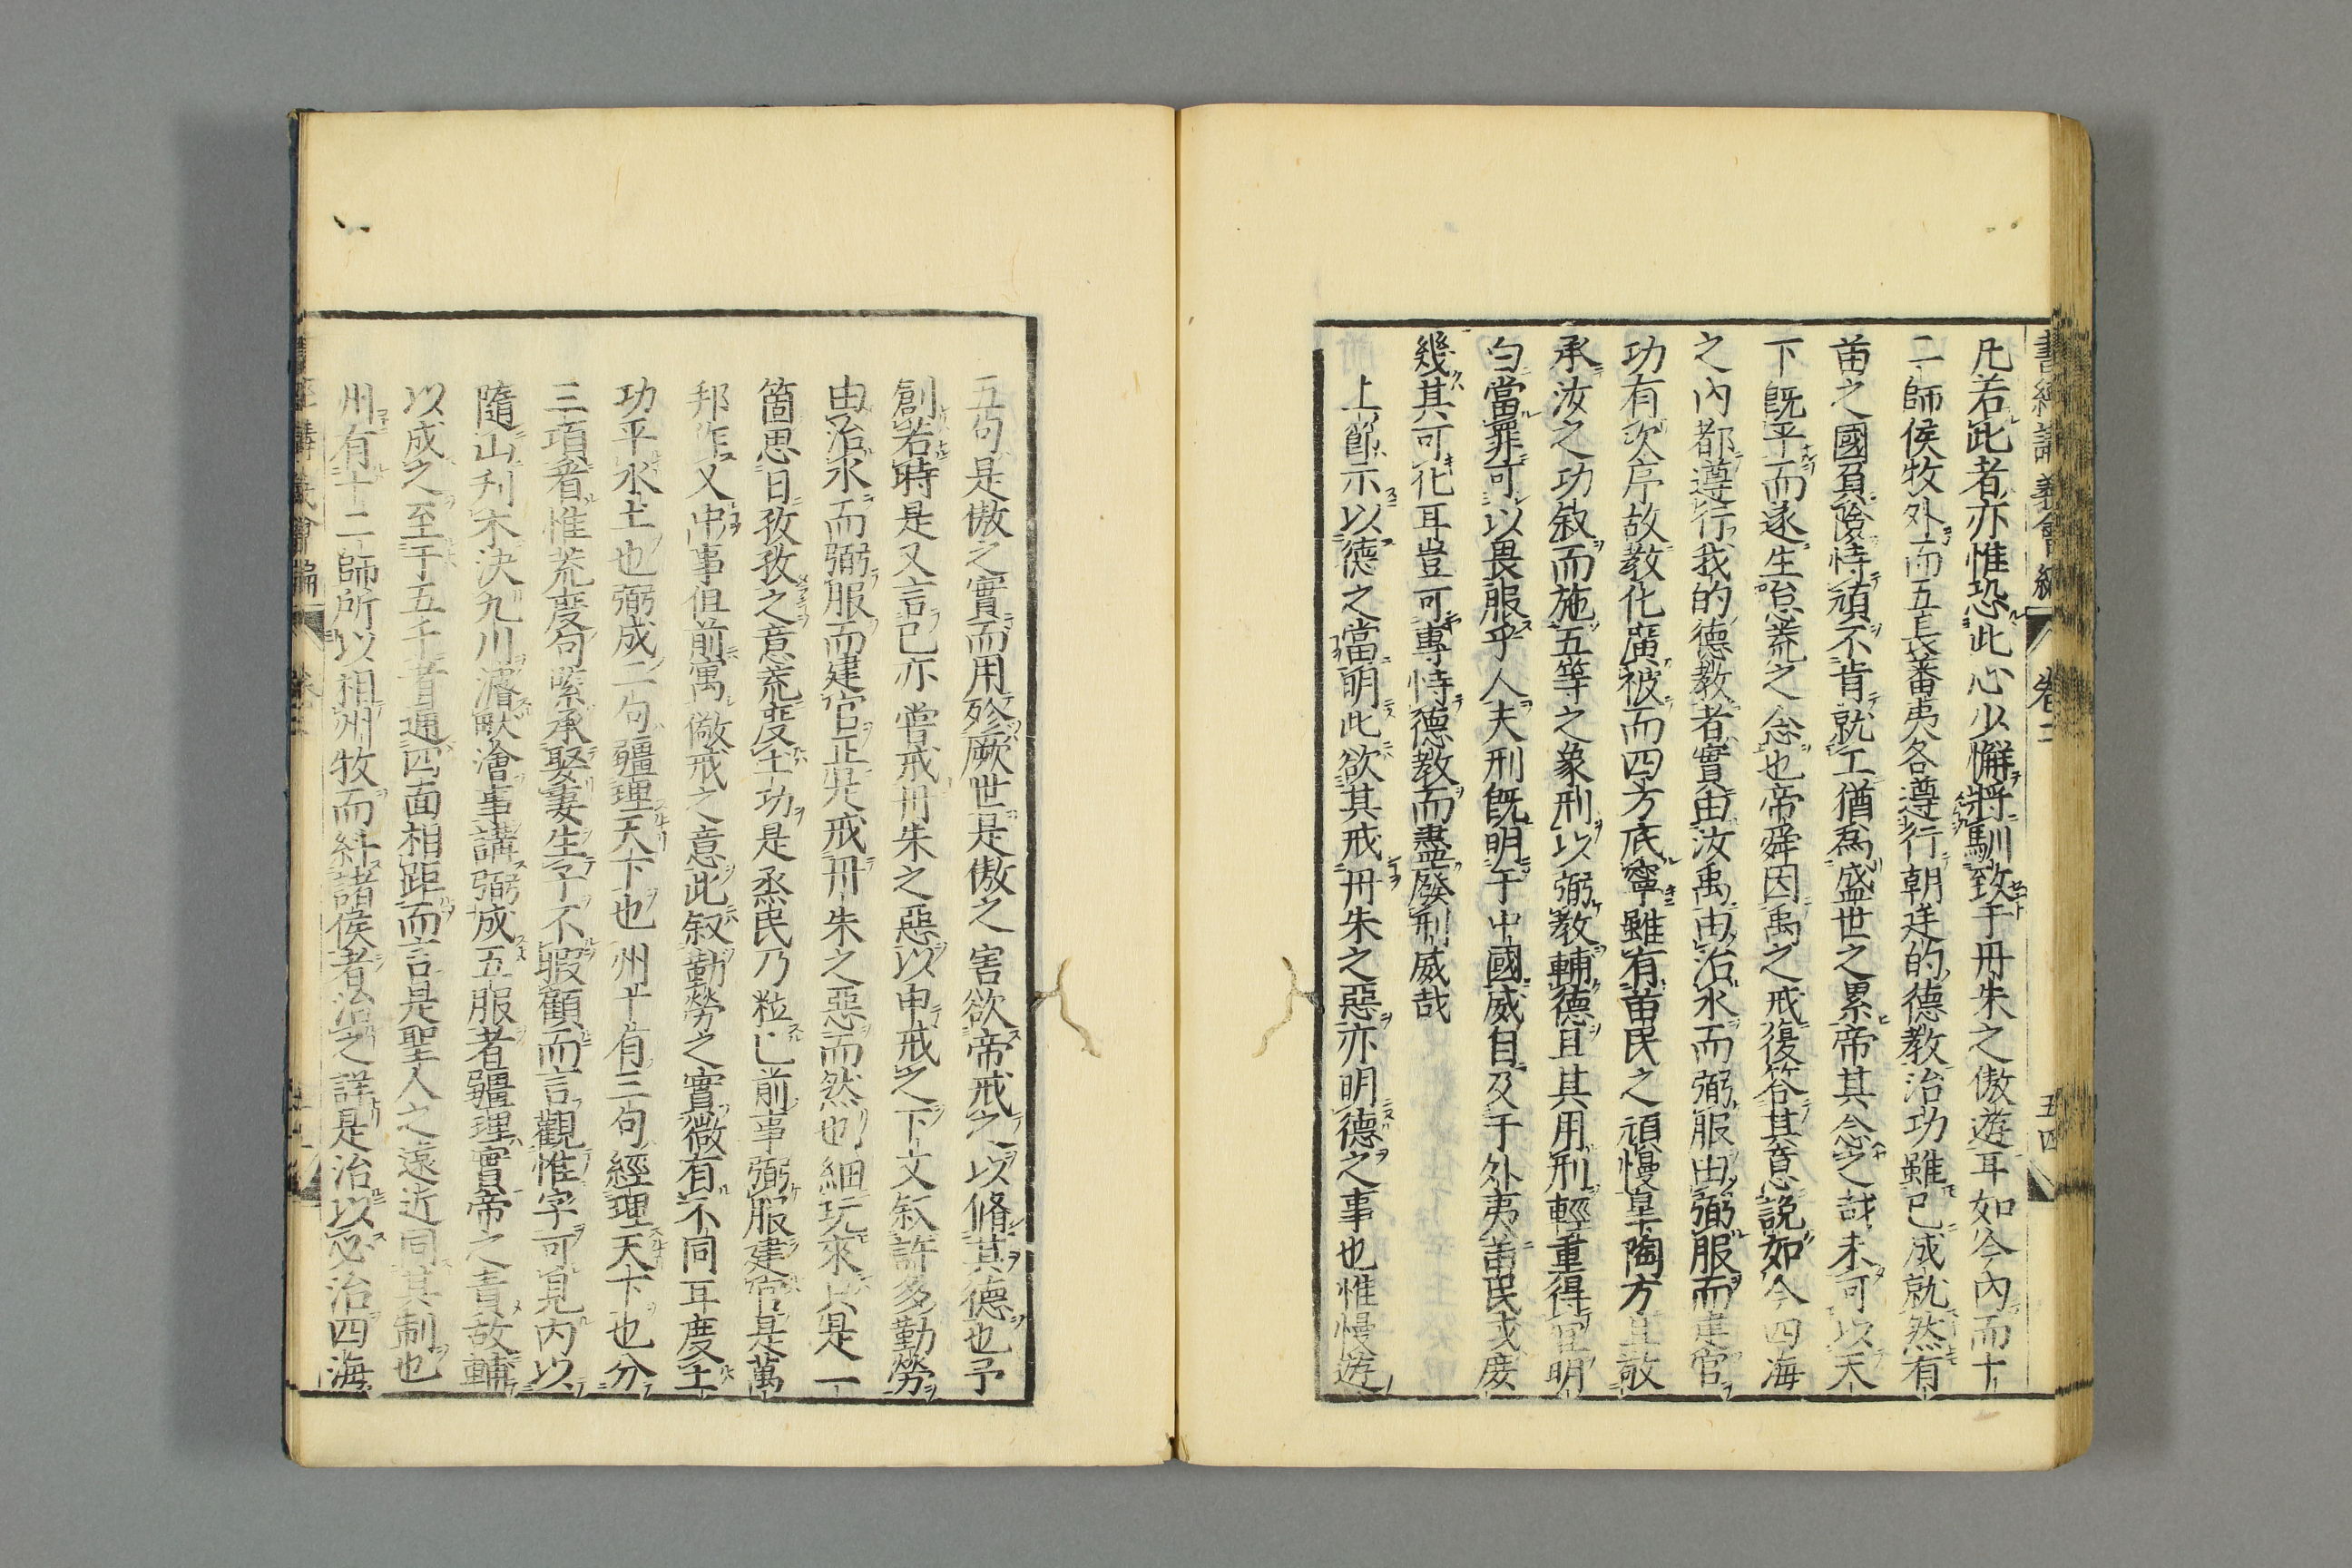 書經講義會編 卷二 五四
凡若此者亦惟恐此心少懈將馴致于丹朱之傲遊耳如今內而十
二師侯牧外而五長蕃夷各遵行朝廷的德教治功雖已成就然有
苗之國負險恃頑不肯就工猶為盛世之累帝其念之哉未可以天
下既平而遂生怠荒之念也帝舜因禹之戒復答其意說如今四海
之內都遵行我的德教者實由汝禹由治水而弼服由弼服而建官
功有次序故教化廣被而四方底寧雖有苗民之頑慢皐陶方且敬
承汝之功敘而施五等之象刑以弼教輔德且其用刑輕重得宜明
勻當罪可以畏服乎人夫刑既明于中國威自及于外夷苗民或庶
幾其可化耳豈可專恃德教而盡廢刑威哉
上節示以德之當明此欲其戒丹朱之惡亦明德之事也惟慢遊
五句是傲之實而用殄厥世是傲之害欲帝戒之以脩其德也予
創若時是又言己亦嘗戒丹朱之惡以申戒之下文叙許多勤勞
由治水而弼服而建官正是戒丹朱之惡而然也細玩來只是一
箇思日孜孜之意荒度土功是烝民乃粒已前事弼服建官是萬
邦作乂中事但前寓儆戒之意此叙勤勞之實微有不同耳度土
功平水土也弼成二句疆理天下也州十有三句經理天下也分
三項看惟荒度句緊承娶妻生子不暇顧而言觀惟字可見內以
隨山刋木決九川濬畎澮事講弼成五服者疆理實帝之責故輔
以成之至于五千者通四面相距而言是聖人之遠近同其制也
州有十二師所以相州牧而糾諸侯者治之詳是治以必治四海